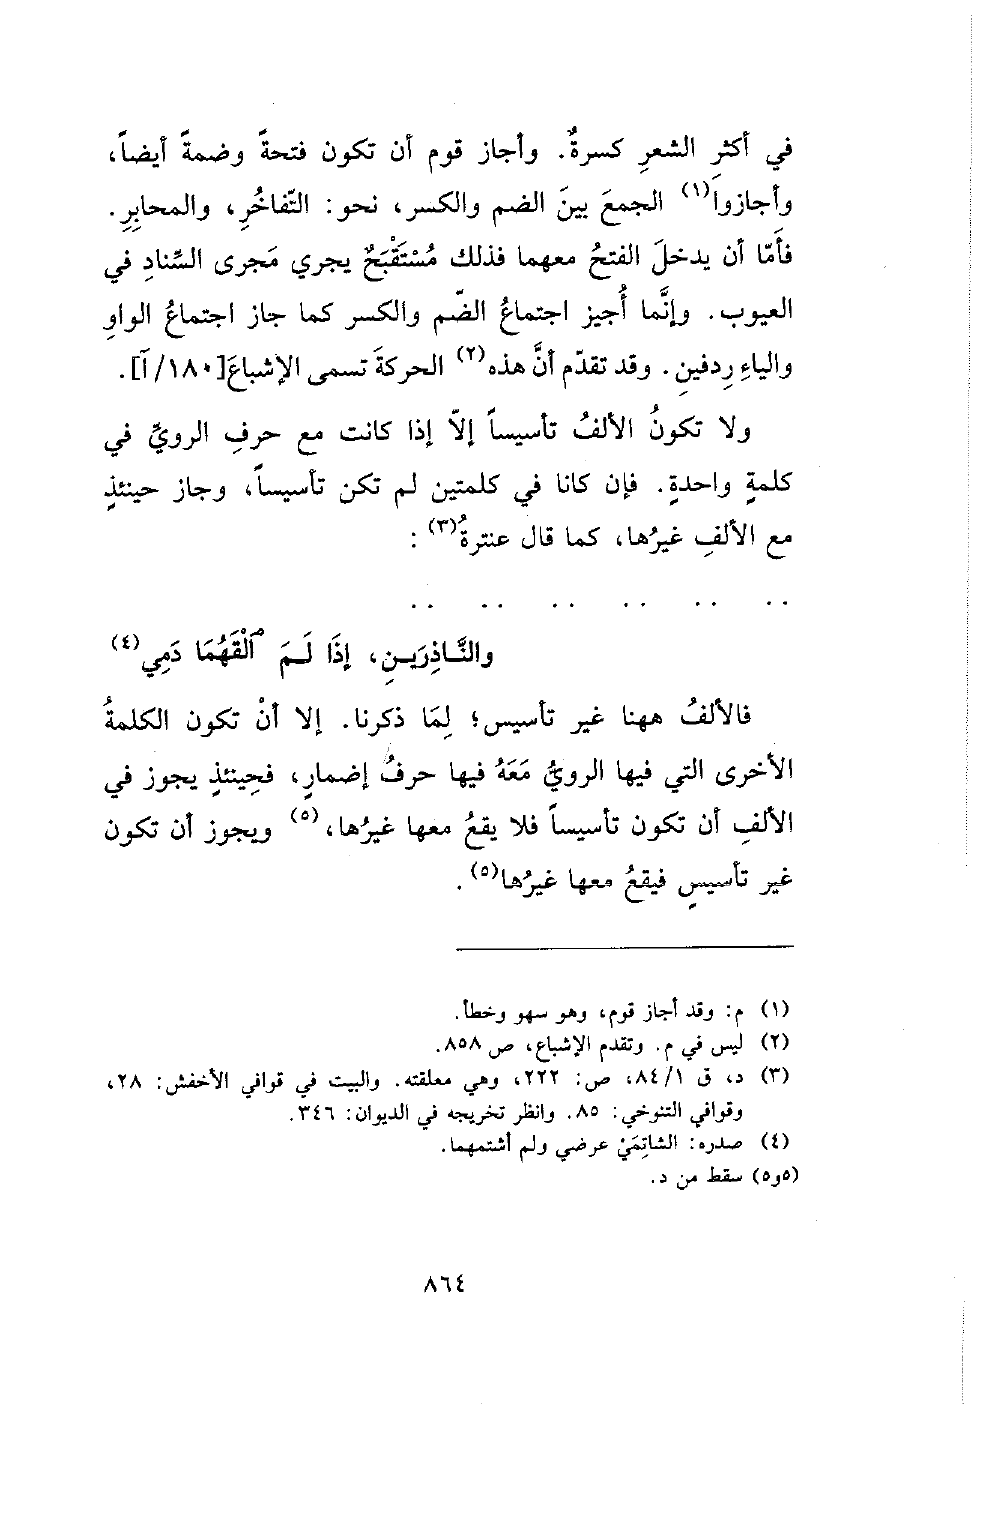 في أكثرِ الشعرِ كسرةٌ. وأجاز قوم أن تكون فتحةً وضمةً أيضاً،
وأجازوا(١) الجمعَ بينَ الضم والكسر، نحو: التّفاخُرِ، والمحابِرِ.
فأمّا أن يدخلَ الفتحُ معهما فذلك مُسْتَقْبَحٌ يجري مَجرى السِّنادِ في
العيوب. وإنَّما أُجيز اجتماعُ الضّم والكسر كما جاز اجتماعُ الواوِ
والياءِ رِدفينِ. وقد تقدّم أنَّ هذه(٢) الحركةَ تسمى الإشباعَ[١٨٠/آ].
ولا تكونُ الألفُ تأسيساً إلاّ إذا كانت مع حرفِ الرويِّ في
كلمةٍ واحدةٍ. فإن كانا في كلمتين لم تكن تأسيساً، وجاز حينئذٍ
مع الألفِ غيرُها، كما قال عنترةُ(٣) :
.. .. .. .. .. ..
والنَّاذِرَيـنِ، إذَا لَـمَ ٱلْقَهُمَا دَمِي(٤)
فالألفُ ههنا غير تأسيس؛ لِمَا ذكرنا. إلا أنْ تكون الكلمةُ
الأخرى التي فيها الرويُّ مَعَهُ فيها حرفُ إضمارٍ، فحِينئذٍ يجوز في
الألفِ أن تكون تأسيساً فلا يقعُ معها غيرُها،(٥) ويجوز أن تكون
غير تأسيسٍ فيقعُ معها غيرُها(٥).
(١) م: وقد أجاز قوم، وهو سهو وخطأ.
(٢) ليس في م. وتقدم الإشباع، ص ٨٥٨.
(٣) د، ق ٨٤/١، ص: ٢٢٢، وهي معلقته. والبيت في قوافي الأخفش: ٢٨،
وقوافي التنوخي: ٨٥. وانظر تخريجه في الديوان: ٣٤٦.
(٤) صدره: الشاتِمَيْ عرضي ولم أشتمهما.
(٥و٥) سقط من د.
٨٦٤